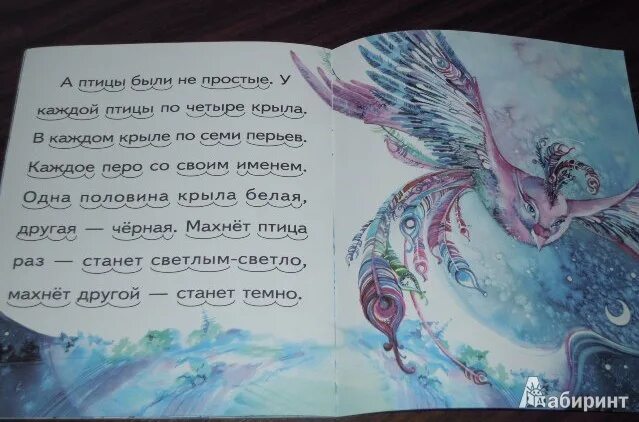 А птицы были не простые. У
каждой птицы по четыре крыла.
В каждом крыле по семи перьев.
Каждое перо со своим именем.
Одна половина крыла белая,
другая — чёрная. Махнёт птица
раз — станет светлым-светло,
махнёт другой — станет темно.
Лабиринт